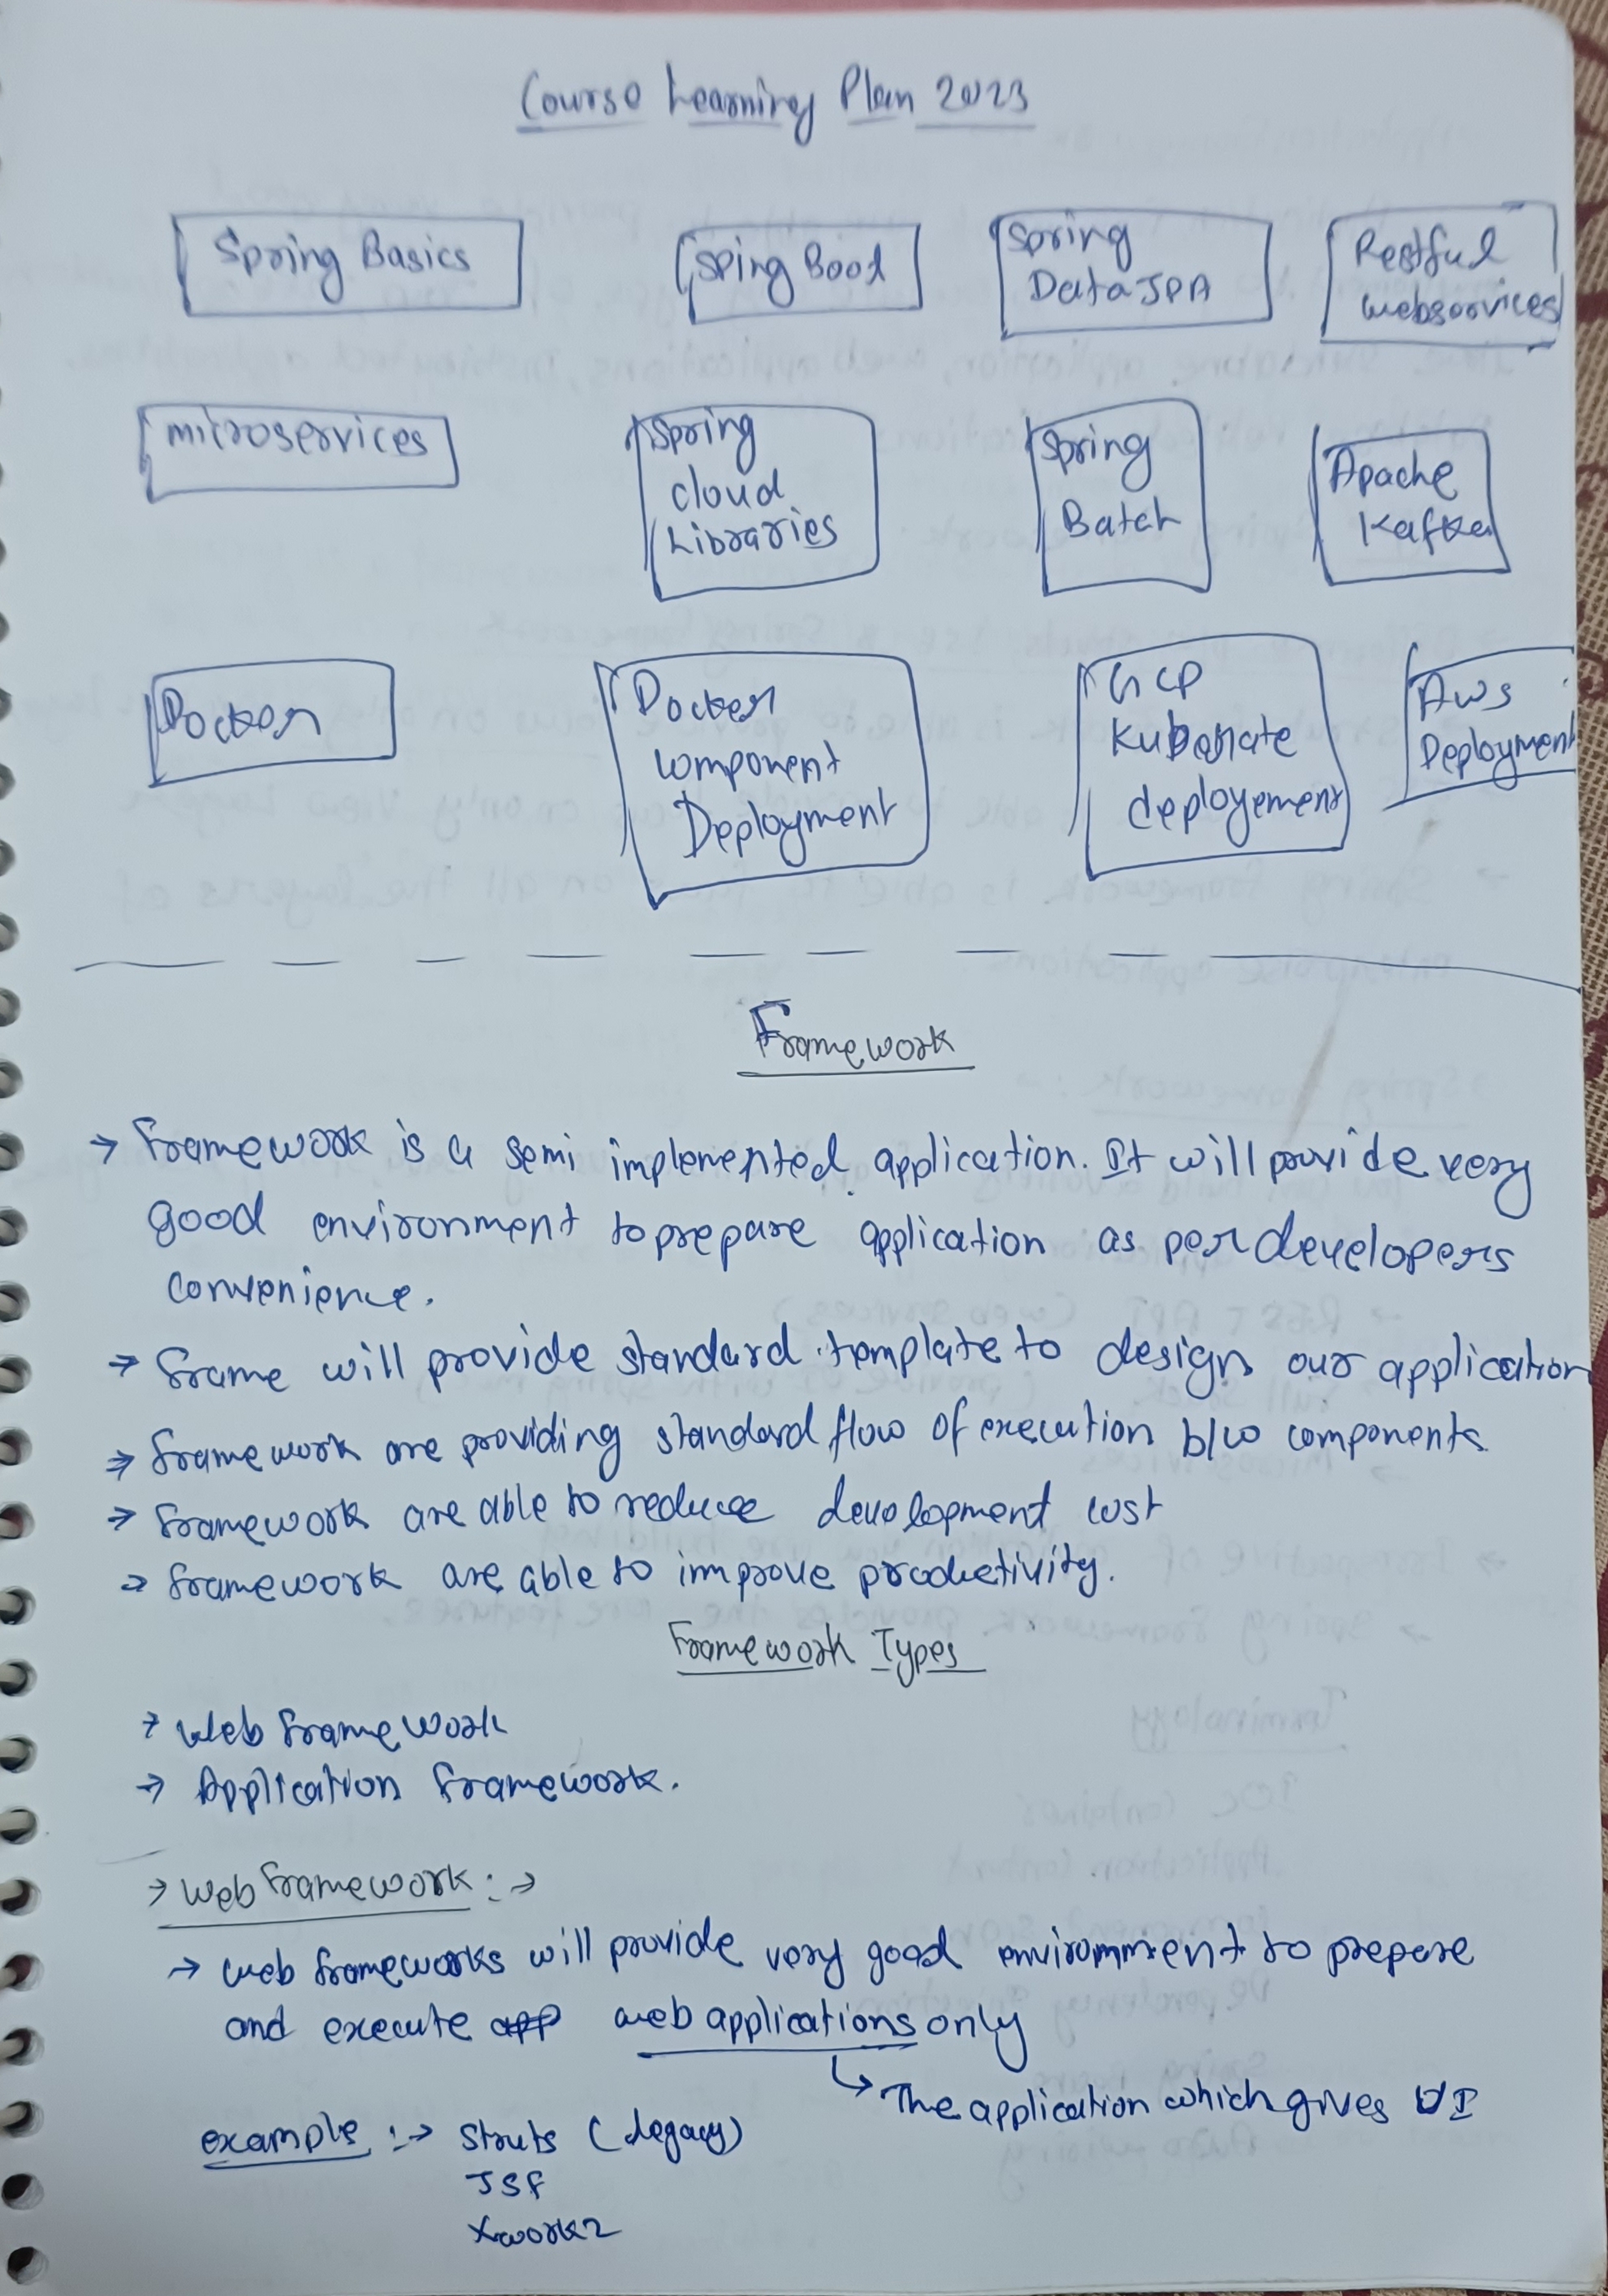 Course Learning Plan 2023
Spring Basics
Sping Boot
Spring
Data JPA
Restful
webservices
microservices
Spring
cloud
Libraries
Spring
Batch
Apache
Kafka
Docker
Docker
component
Deployment
GCP
Kubernate
deployement
Aws
Deployment
Framework
→ Framework is a semi implemented application. It will provide very
good environment to prepare application as per developers
convenience.
→ Frame will provide standard template to design our application
→ Framework are providing standard flow of execution b/w components
→ Framework are able to reduce development cost
→ Framework are able to improve productivity.
Framework Types
→ Web Framework
→ Application Framework.
→ Web Framework :→
→ Web Frameworks will provide very good environment to prepare
and execute app web applications only
↳ The application which gives UI
example :→ Struts (Legacy)
JSF
Xwork2